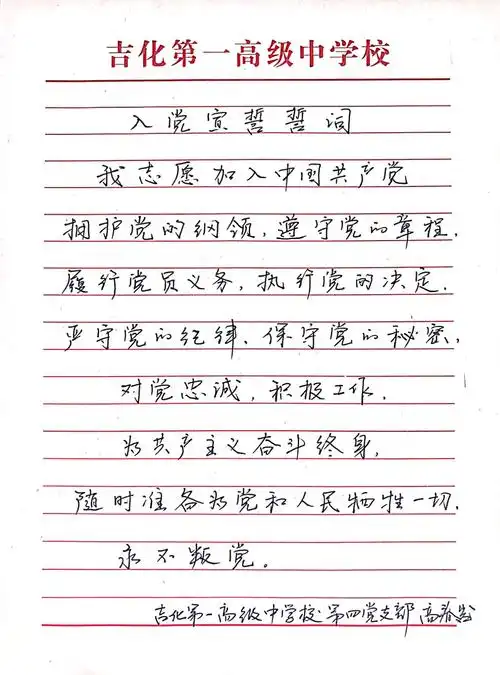 吉化第一高级中学校
入党宣誓誓词
我志愿加入中国共产党
拥护党的纲领,遵守党的章程,
履行党员义务,执行党的决定,
严守党的纪律,保守党的秘密,
对党忠诚,积极工作,
为共产主义奋斗终身,
随时准备为党和人民牺牲一切,
永不叛党。
吉化第一高级中学校第四党支部 高春